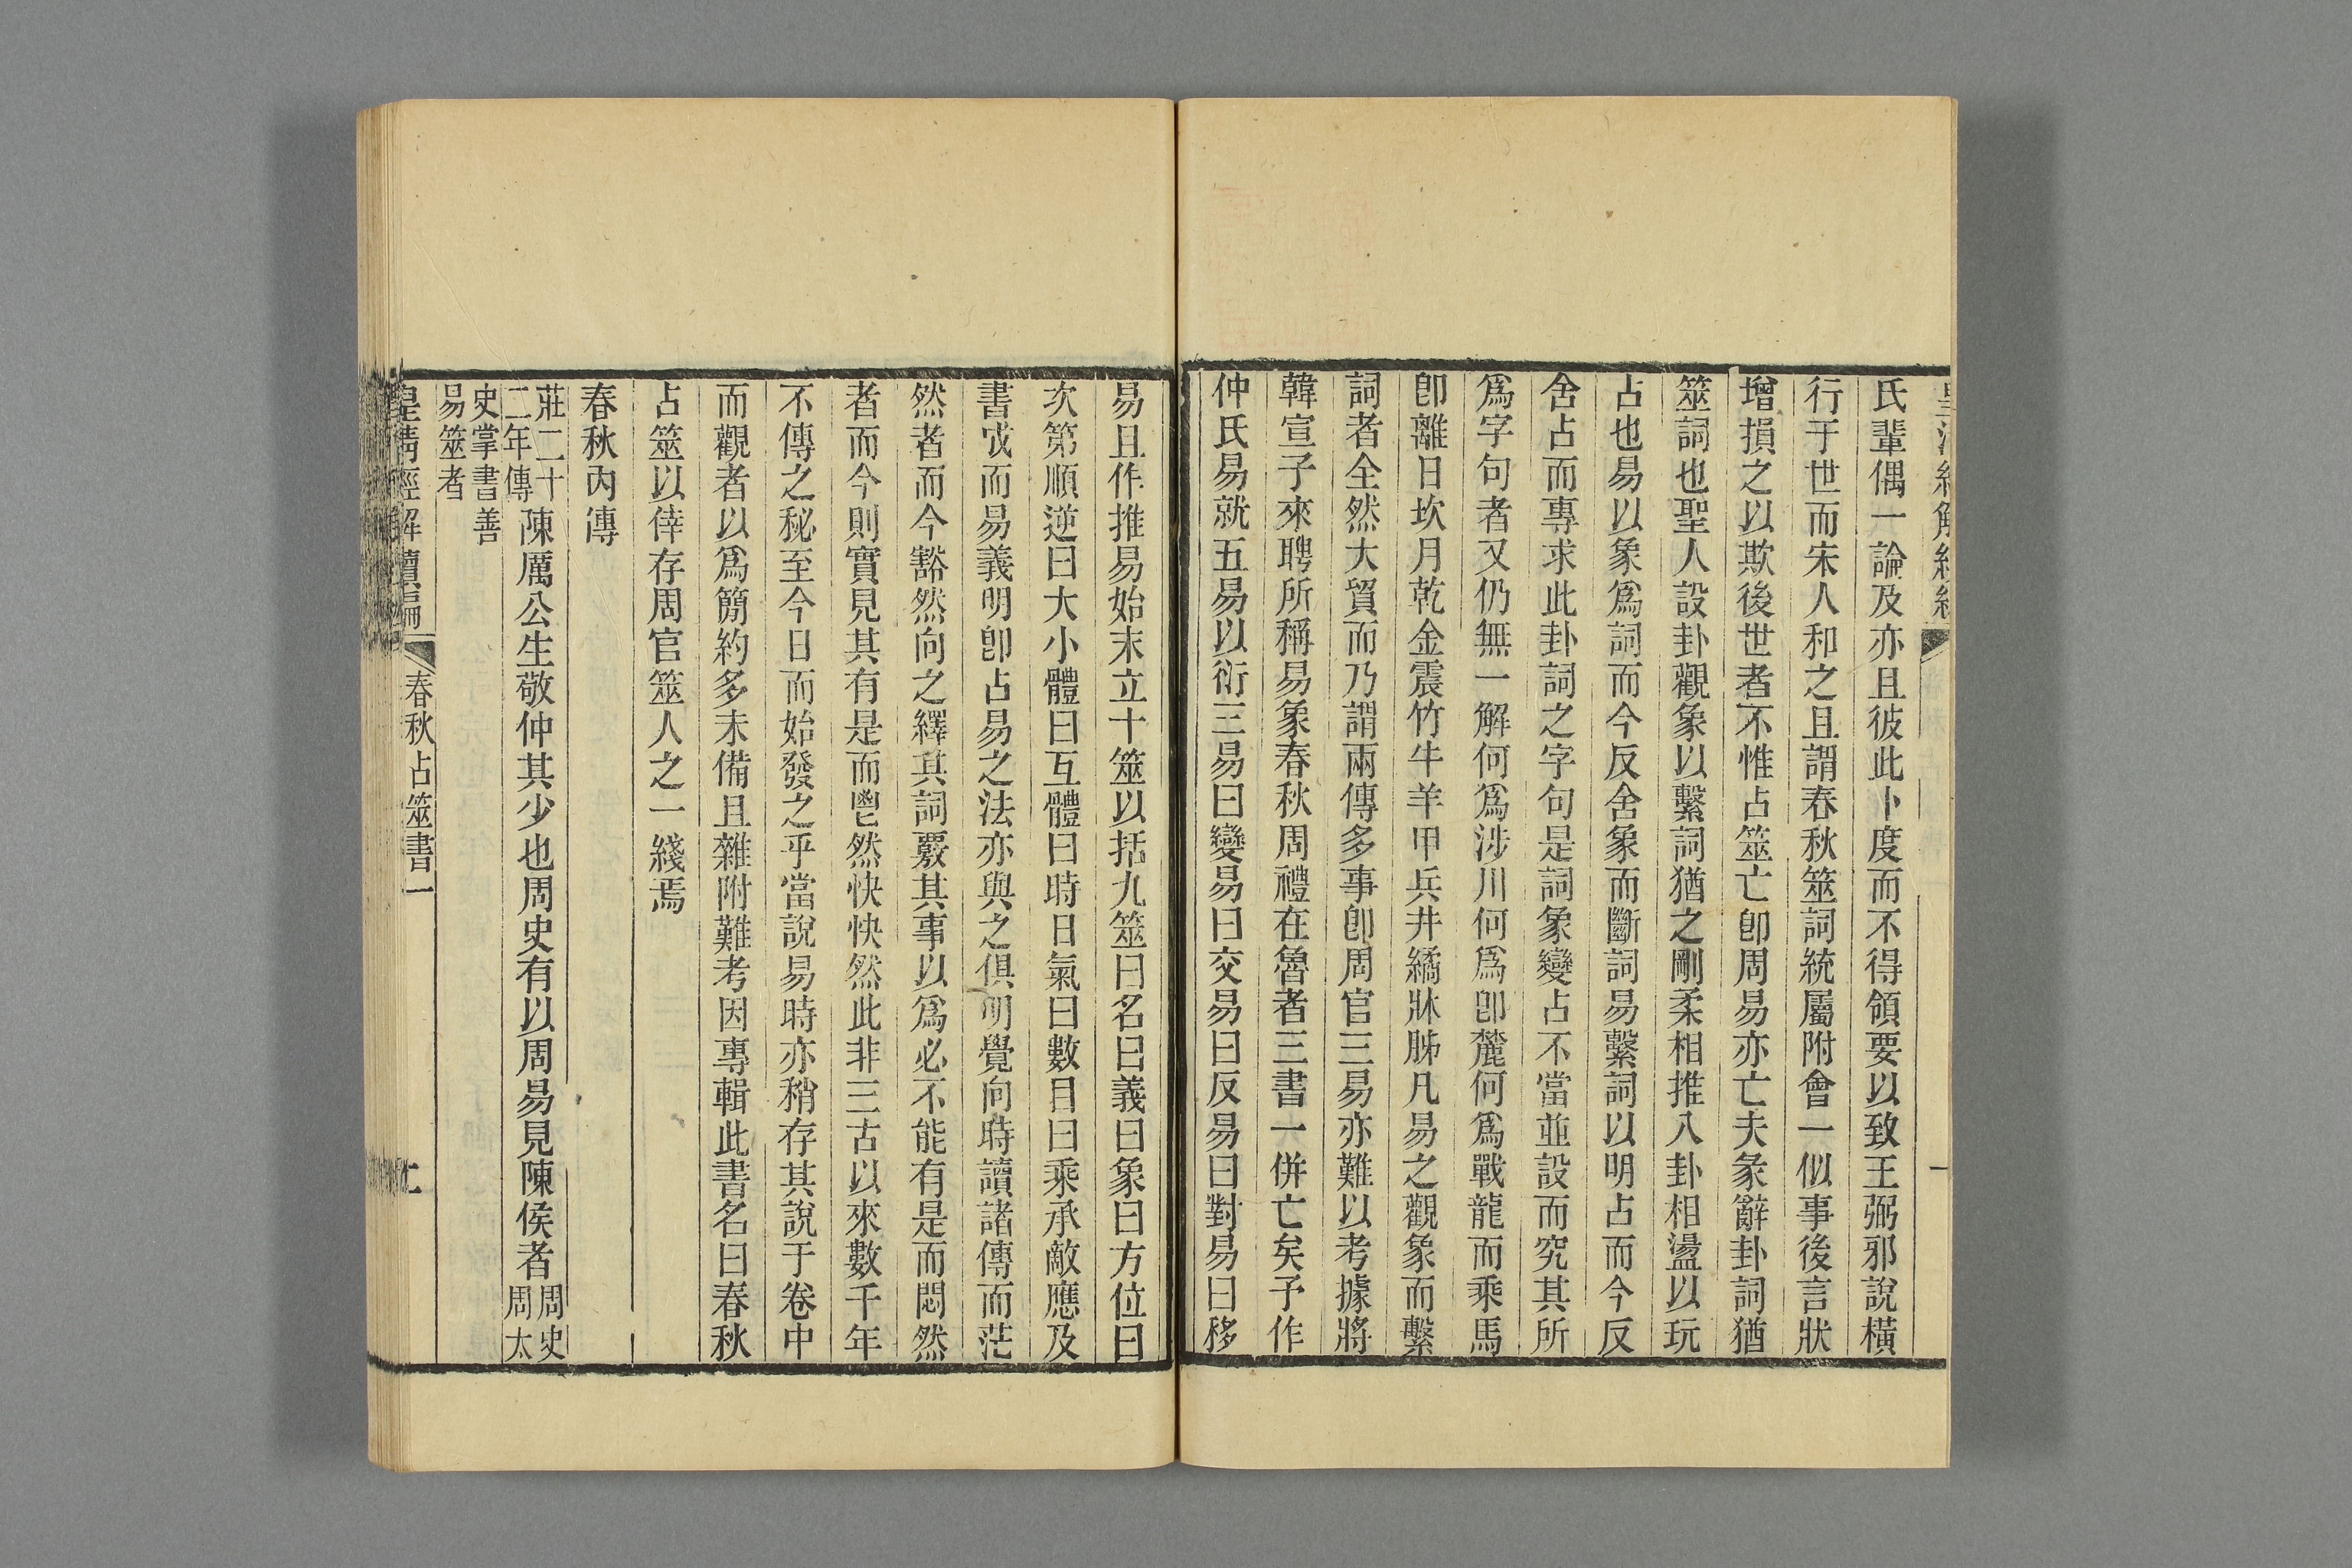 氏輩偶一論及亦且彼此卜度而不得領要以致王弼邪說橫
行于世而宋人和之且謂春秋筮詞統屬附會一似事後言狀
增損之以欺後世者不惟占筮亡卽周易亦亡夫彖辭卦詞猶
筮詞也聖人設卦觀象以繫詞猶之剛柔相推八卦相盪以玩
占也易以象爲詞而今反舍象而斷詞易繫詞以明占而今反
舍占而專求此卦詞之字句是詞象變占不當並設而究其所
爲字句者又仍無一解何爲涉川何爲卽麓何爲戰龍而乘馬
卽離日坎月乾金震竹牛羊甲兵井繘牀胏凡易之觀象而繫
詞者全然大貿而乃謂兩傳多事卽周官三易亦難以考據將
韓宣子來聘所稱易象春秋周禮在魯者三書一併亡矣予作
仲氏易就五易以衍三易曰變易曰交易曰反易曰對易曰移
易且作推易始末立十筮以括九筮曰名曰義曰象曰方位曰
次第順逆曰大小體曰互體曰時日氣曰數目曰乘承敵應及
書成而易義明卽占易之法亦與之俱明覺向時讀諸傳而茫
然者而今豁然向之繹其詞覈其事以爲必不能有是而悶然
者而今則實見其有是而鬯然快快然此非三古以來數千年
不傳之秘至今日而始發之乎當說易時亦稍存其說于卷中
而觀者以爲簡約多未備且雜附難考因專輯此書名曰春秋
占筮以倖存周官筮人之一綫焉
春秋內傳
莊二十二年傳陳厲公生敬仲其少也周史有以周易見陳侯者周史周太
史掌書善易筮者
皇淸經解續編 春秋占筮書一